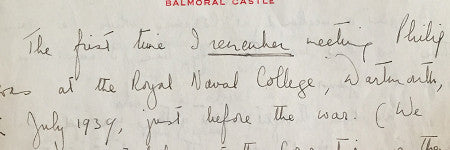 BALMORAL CASTLE
The first time I remember meeting Philip
was at the Royal Naval College, Dartmouth,
July 1939, just before the war. (We
the